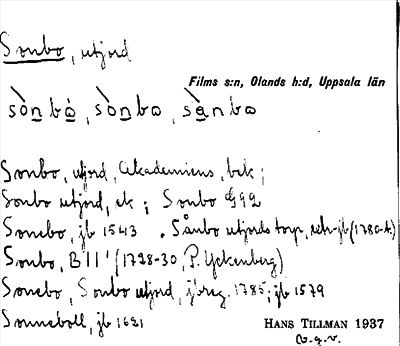 Sonbo, utjord
Films s:n, Olands h:d, Uppsala län
sònbò, sònbo, sànbo
Sonbo, utjord, Akademiens, bek;
Sonbo utjord, ek; Sonbo G92
Sonebo, jb 1543. Sånbo utjords torp,
Sonbo, B11 (1728-30, P. Yckenberg)
Sonebo, Sonbo utjord, jbreg. 1785; jb 1579
Sonneboll, jb 1621
HANS TILLMAN 1937